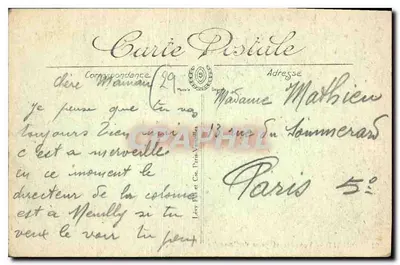 Carte Postale
Correspondance
Adresse
Chère Maman (29
Je pense que tu vas
toujours bien moi
c'est a merveille
en ce moment le
directeur de la colonie
est à Neuilly si tu
veux le voir tu peux
Madame Mathieu
13 rue du Sommerard
Paris 5º
CARTAPHILIA